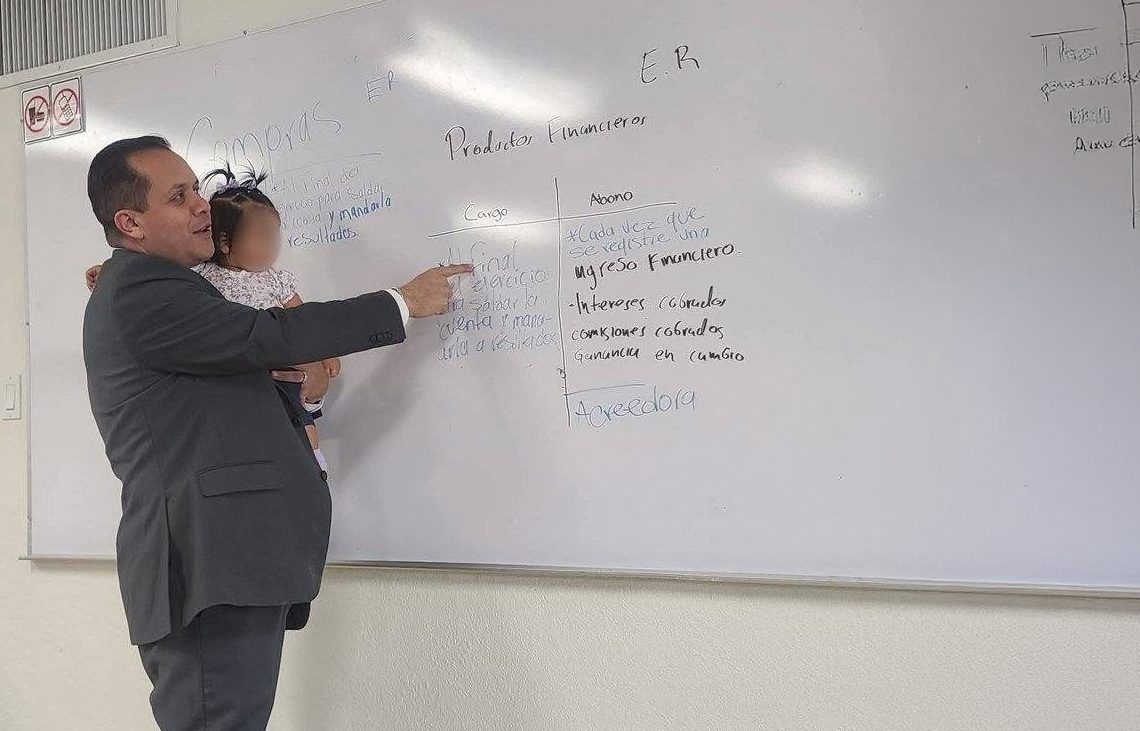 Compras
E R
final del
para saldar
y mandarla
resultados
E.R
Productos Financieros
Cargo
*Al final
ejercicio
saldar la
cuenta y mand-
arla a resultados
Abono
*Cada vez que
se registre una
ingreso Financiero.
-Intereses cobrados
comisiones cobrados
Ganancia en cambio
Acreedora